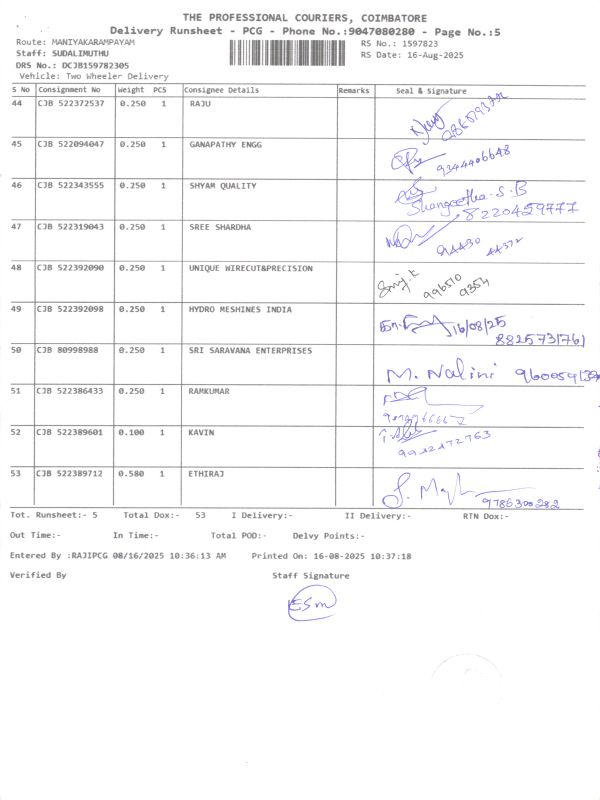 THE PROFESSIONAL COURIERS, COIMBATORE
Delivery Runsheet - PCG - Phone No.:9047080280 - Page No.:5
Route: MANIYAKARAMPAYAM
RS No.: 1597823
Staff: SUDALIMUTHU
RS Date: 16-Aug-2025
DRS No.: DCJB159782305
Vehicle: Two Wheeler Delivery
S No Consignment No Weight PCS Consignee Details Remarks Seal & Signature
44 CJB 522372537 0.250 1 RAJU
45 CJB 522094047 0.250 1 GANAPATHY ENGG
9344406648
46 CJB 522343555 0.250 1 SHYAM QUALITY
Shangeetha. S. B
8220459777
47 CJB 522319043 0.250 1 SREE SHARDHA
94430 44372
48 CJB 522392090 0.250 1 UNIQUE WIRECUT&PRECISION
996510 9354
49 CJB 522392098 0.250 1 HYDRO MESHINES INDIA
16/08/25
8825731761
50 CJB 80998988 0.250 1 SRI SARAVANA ENTERPRISES
M. Nalini
51 CJB 522386433 0.250 1 RAMKUMAR
52 CJB 522389601 0.100 1 KAVIN
9942472763
53 CJB 522389712 0.580 1 ETHIRAJ
9786300282
Tot. Runsheet:- 5 Total Dox:- 53 I Delivery:- II Delivery:- RTN Dox:-
Out Time:- In Time:- Total POD:- Delvy Points:-
Entered By :RAJIPCG 08/16/2025 10:36:13 AM Printed On: 16-08-2025 10:37:18
Verified By Staff Signature
ESM